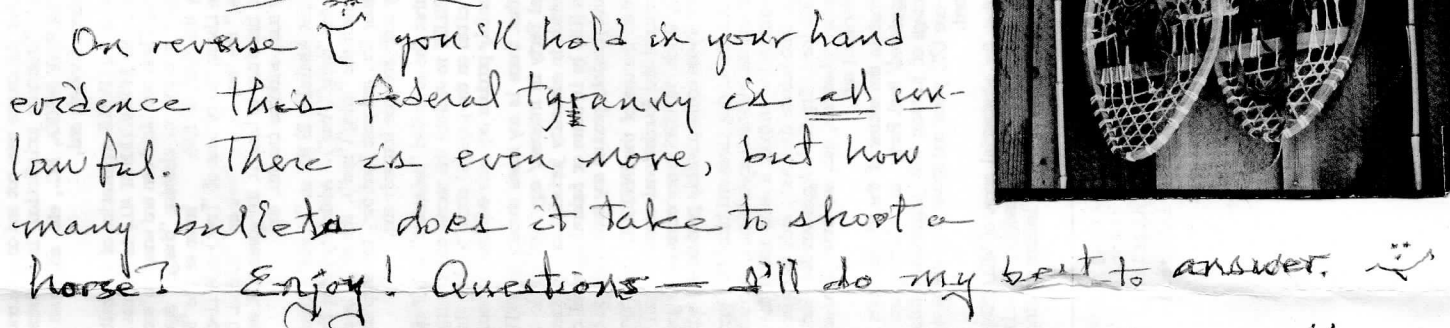 On reverse you'll hold in your hand
evidence this federal tyranny is all un-
lawful. There is even more, but how
many bullets does it take to shoot a
horse? Enjoy! Questions — I'll do my best to answer.